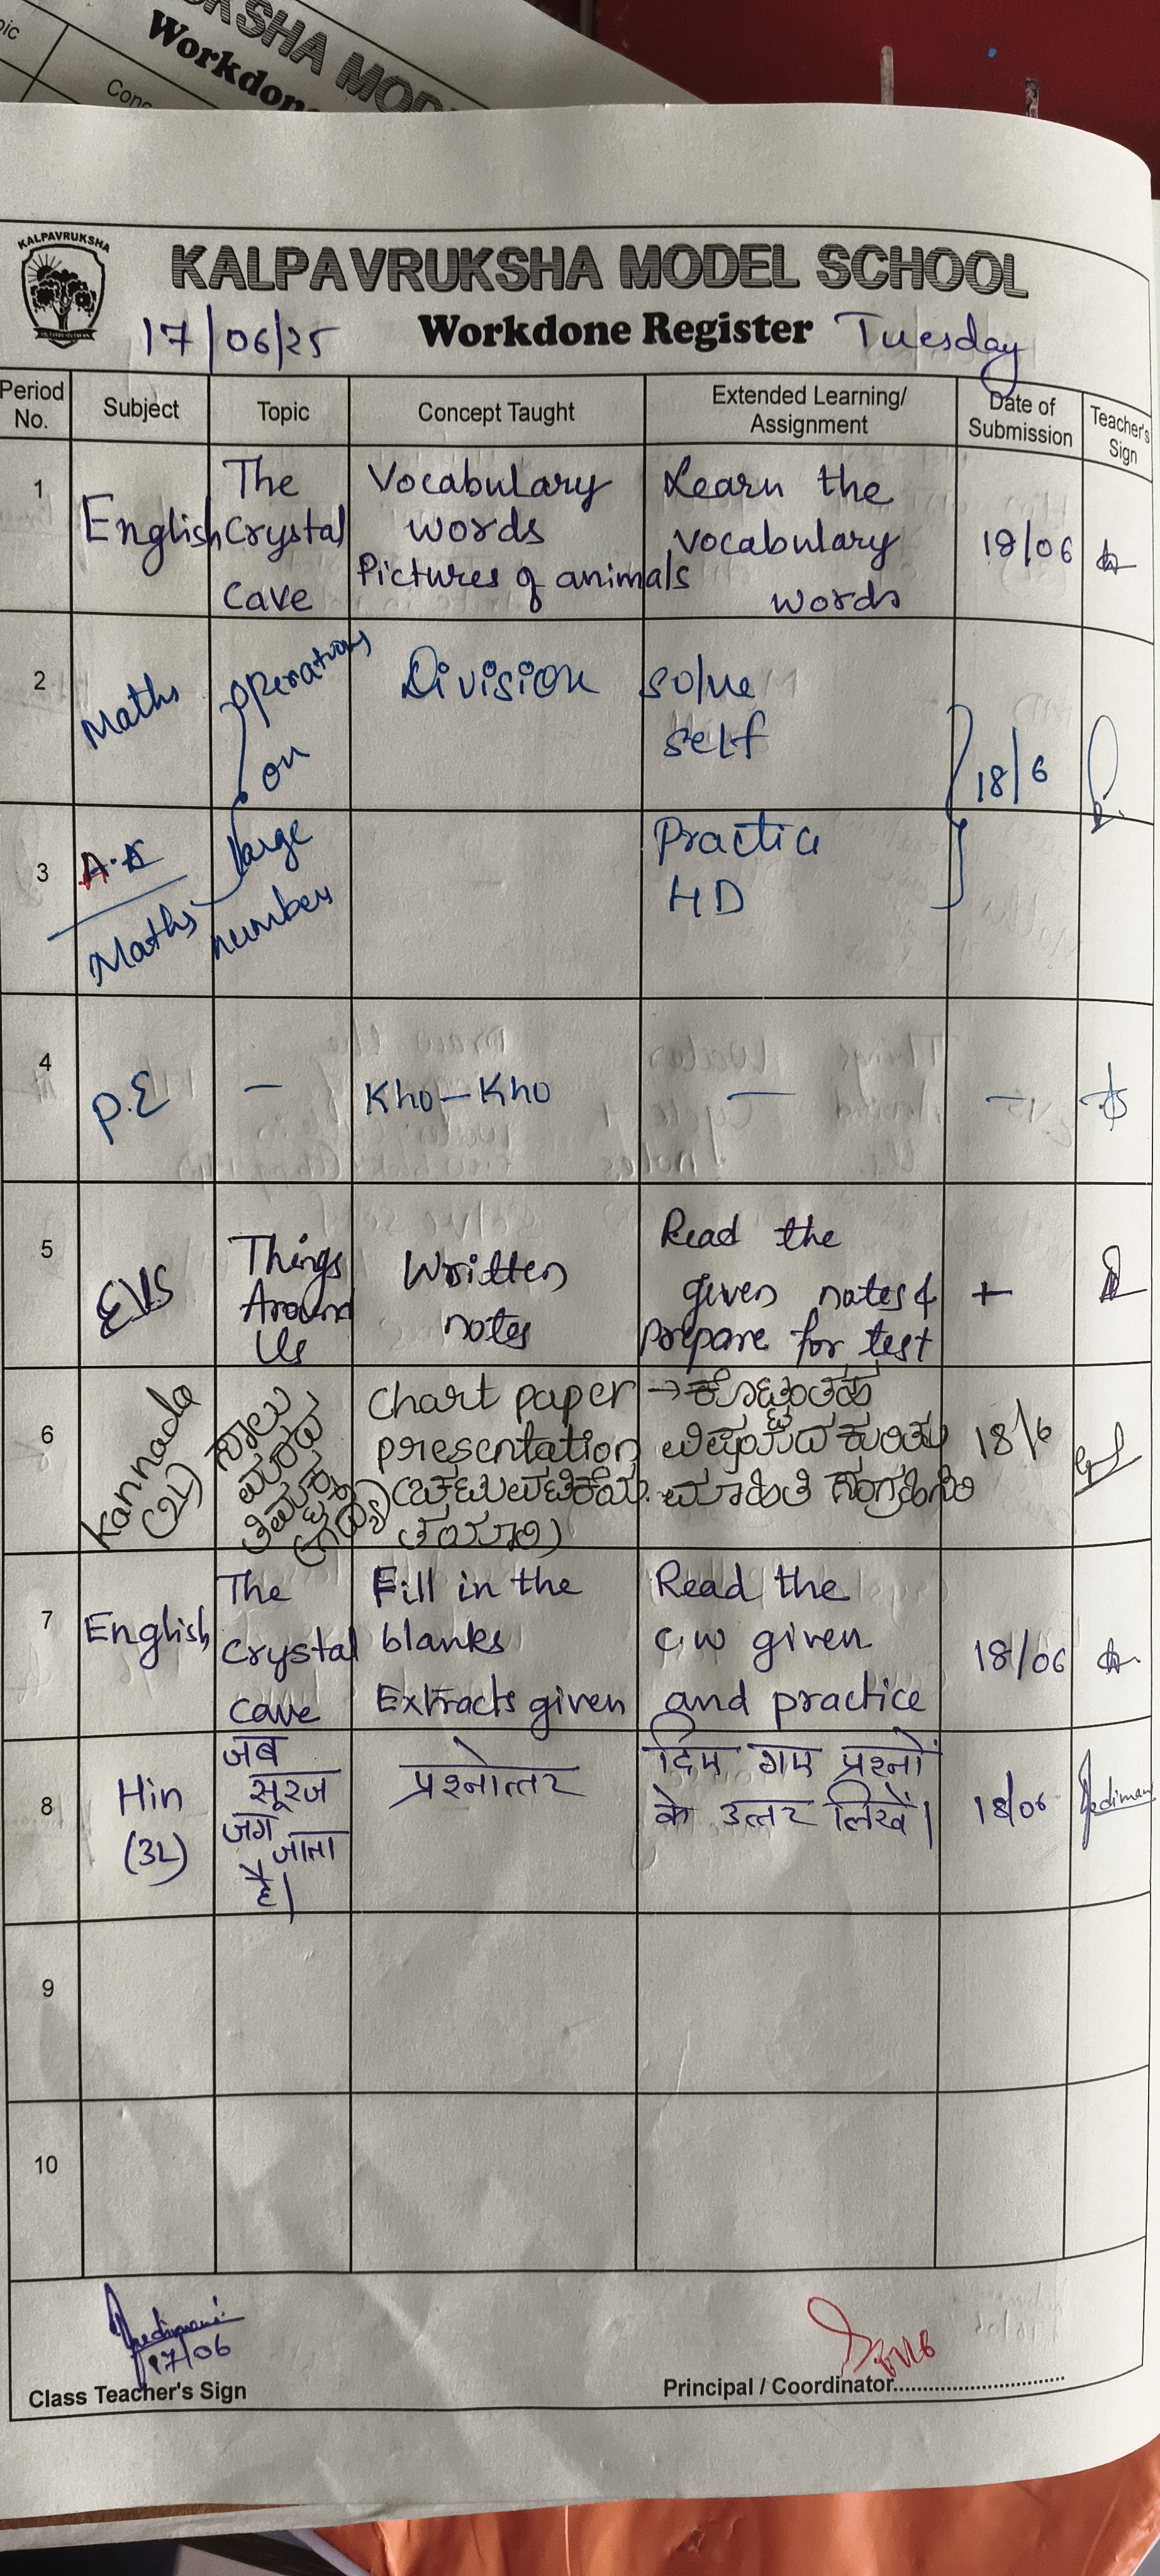 Workdone
KALPAVRUKSHA
KALPAVRUKSHA MODEL SCHOOL
17/06/25 Workdone Register Tuesday
Period No. Subject Topic Concept Taught Extended Learning/ Assignment Date of Submission Teacher's Sign
1 English The Crystal Cave Vocabulary words Pictures of animals Learn the vocabulary words 18/06
2 Maths operations on Division solve self 18/6
3 Maths large numbers Practice HD
4 P.E — Kho-Kho — —
5 EVS Things Around Us Written notes Read the given notes & prepare for test +
6 Kannada (2L) ನಾಲು Chart paper presentation (ಚಟುವಟಿಕೆಯ ತಯಾರಿ) → ಕೊಟ್ಟಂತಹ ವಿಷಯದ ಕುರಿತು ಮಾಹಿತಿ ಸಂಗ್ರಹಿಸಿರಿ 18/6
7 English The Crystal Cave Fill in the blanks Extracts given Read the c.w given and practice 18/06
8 Hin (3L) जब सूरज जग जाता है। प्रश्नोत्तर दिए गए प्रश्नों के उत्तर लिखें। 18/06
9
10
17/06
Class Teacher's Sign Principal / Coordinator